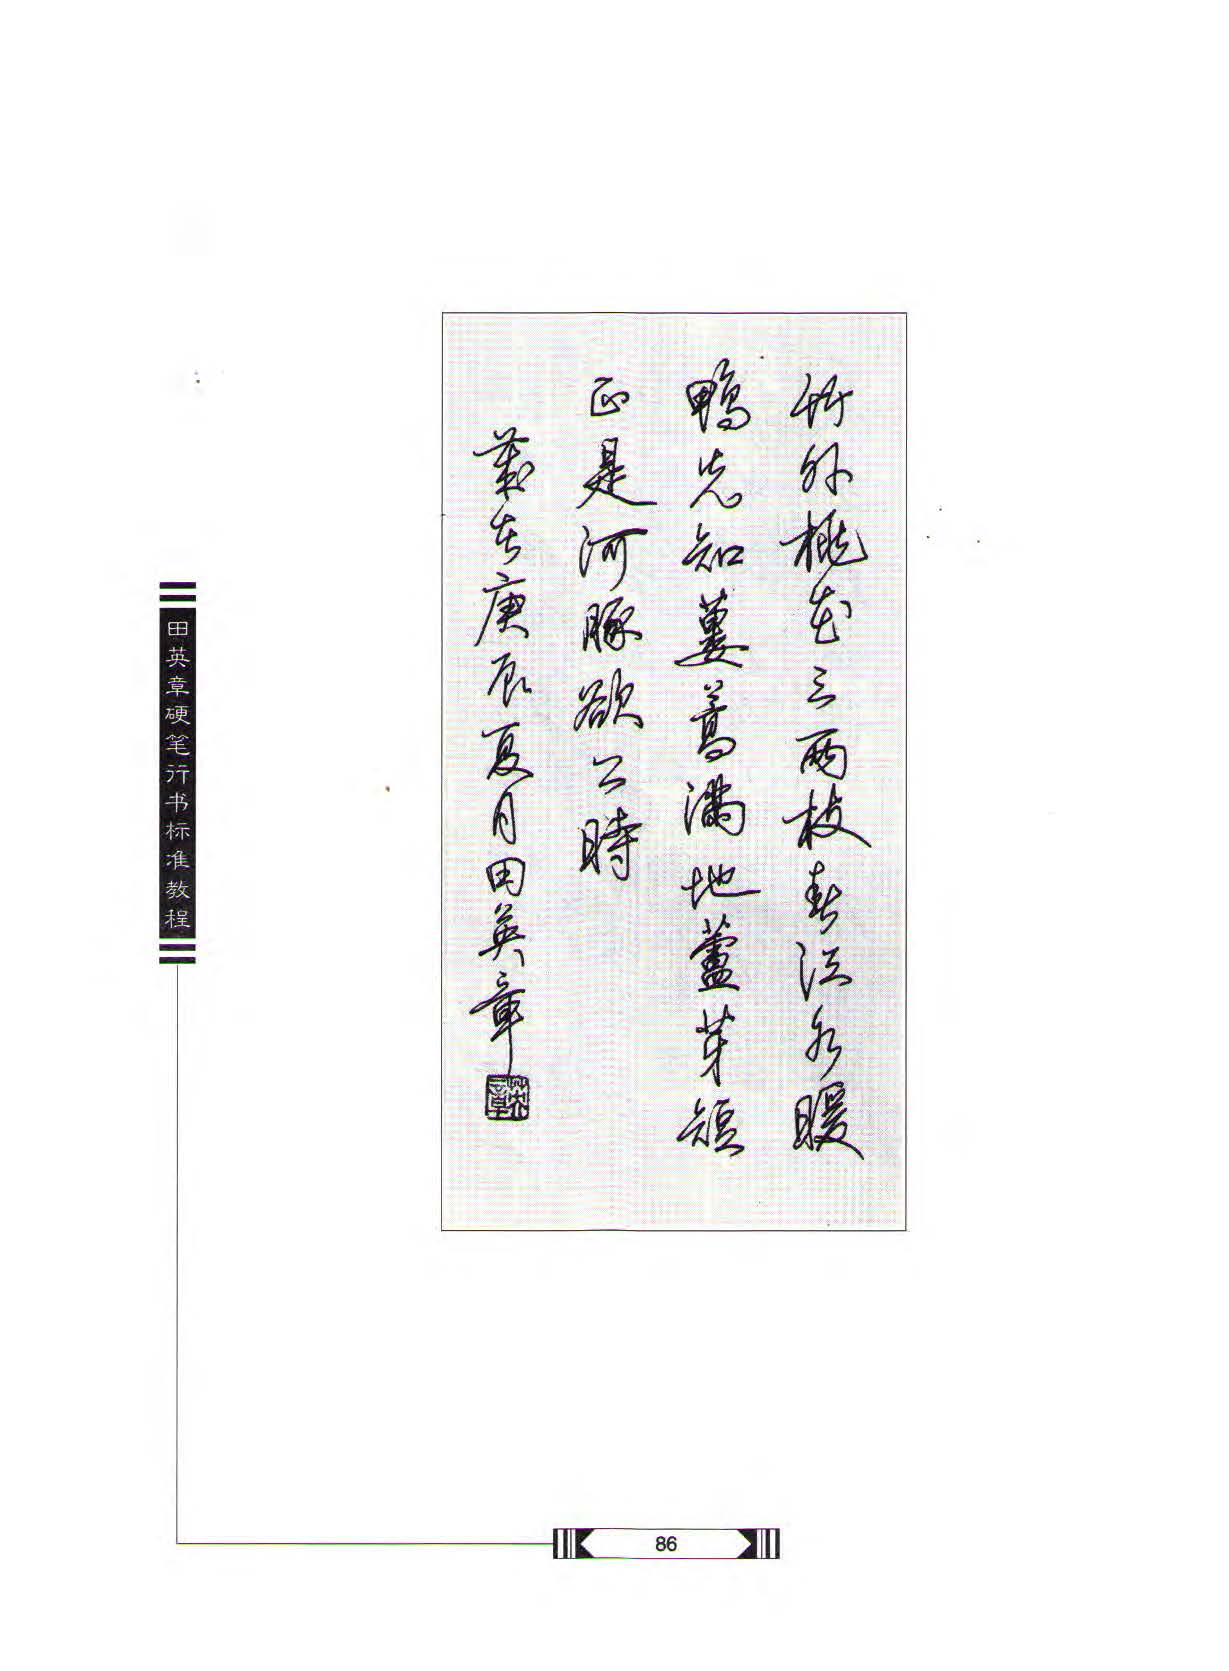 竹外桃花三兩枝春江水暖
鴨先知蔞蒿滿地蘆芽短
正是河豚欲上時
歲在庚辰夏月田英章
英章
田英章硬笔行书标准教程
86